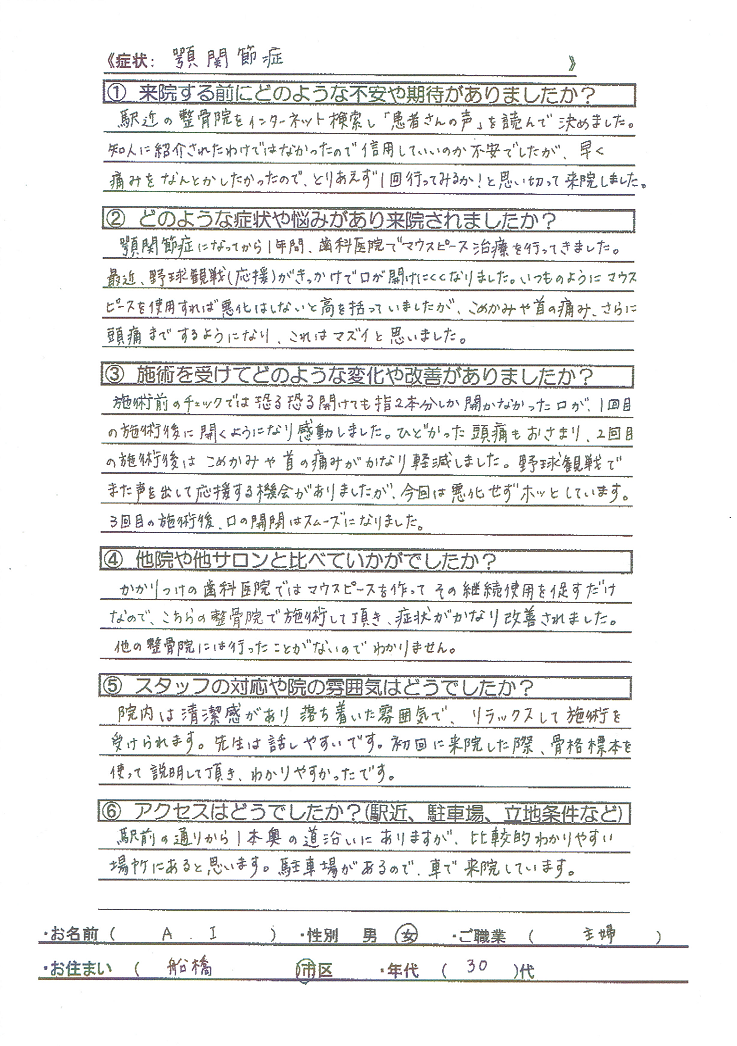 《症状: 顎関節症 》
① 来院する前にどのような不安や期待がありましたか?
駅近の整骨院をインターネット検索し「患者さんの声」を読んで決めました。
知人に紹介されたわけではなかったので信用していいのか不安でしたが、早く
痛みをなんとかしたかったので、とりあえず1回行ってみるか!と思い切って来院しました。
② どのような症状や悩みがあり来院されましたか?
顎関節症になってから1年間、歯科医院でマウスピース治療を行ってきました。
最近、野球観戦(応援)がきっかけで口が開けにくくなりました。いつものようにマウス
ピースを使用すれば悪化はしないと高を括っていましたが、こめかみや首の痛み、さらに
頭痛までするようになり、これはマズイと思いました。
③ 施術を受けてどのような変化や改善がありましたか?
施術前のチェックでは恐る恐る開けても指2本分しか開かなかった口が、1回目
の施術後に開くようになり感動しました。ひどかった頭痛もおさまり、2回目
の施術後はこめかみや首の痛みがかなり軽減しました。野球観戦で
また声を出して応援する機会がありましたが、今回は悪化せずホッとしています。
3回目の施術後、口の開閉はスムーズになりました。
④ 他院や他サロンと比べていかがでしたか?
かかりつけの歯科医院ではマウスピースを作ってその継続使用を促すだけ
なので、こちらの整骨院で施術して頂き、症状がかなり改善されました。
他の整骨院には行ったことがないのでわかりません。
⑤ スタッフの対応や院の雰囲気はどうでしたか?
院内は清潔感があり落ち着いた雰囲気で、リラックスして施術を
受けられます。先生は話しやすいです。初回に来院した際、骨格標本を
使って説明して頂き、わかりやすかったです。
⑥ アクセスはどうでしたか?(駅近、駐車場、立地条件など)
駅前の通りから1本奥の道沿いにありますが、比較的わかりやすい
場所にあると思います。駐車場があるので、車で来院しています。
・お名前 ( A . I ) ・性別 男 女 ・ご職業 ( 主婦 )
・お住まい ( 船橋 市区 ・年代 ( 30 )代